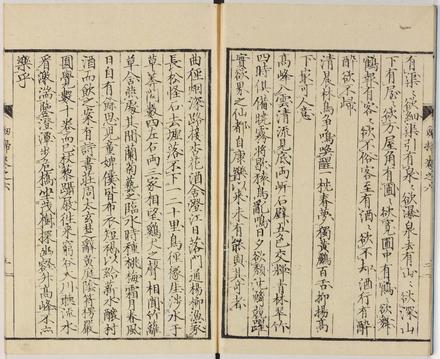 有渠欲細渠引有泉欲瀑泉去有山欲深山
下有屋欲方屋角有圃欲寬圃中有鶴欲舞
鶴報有客欲不俗客至有酒欲不却酒行有醉
醉欲不歸
清晨林鳥爭鳴喚醒一枕春夢獨黃鸝百舌抑揚高
下最可人意
高峰入雲清流見底兩岸石壁五色交輝青林翠竹
四時俱備曉霧將歇猿鳥亂鳴日夕欲頹沉鱗競躍
實欲界之仙都自康樂以來未有能與其奇者
曲徑烟深路接杏花酒舍澄江日落門通楊柳漁家
長松怪石去墟落不下一二十里鳥徑緣崖涉水于
草莽間數四左右兩三家相望鷄犬之聲相聞竹籬
草舍燕處其間蘭菊藝之臨水時種桃梅霜月春風
日自有餘思兒童婢僕皆布衣短褐以給薪水釀村
酒而飲之案有詩書莊周太玄楚辭黃庭陰符楞嚴
圓覺數十卷而已杖藜躡屐往來窮谷大川聽流水
看激湍鑒澄潭步危橋坐茂樹探幽壑升高峰不亦
樂乎